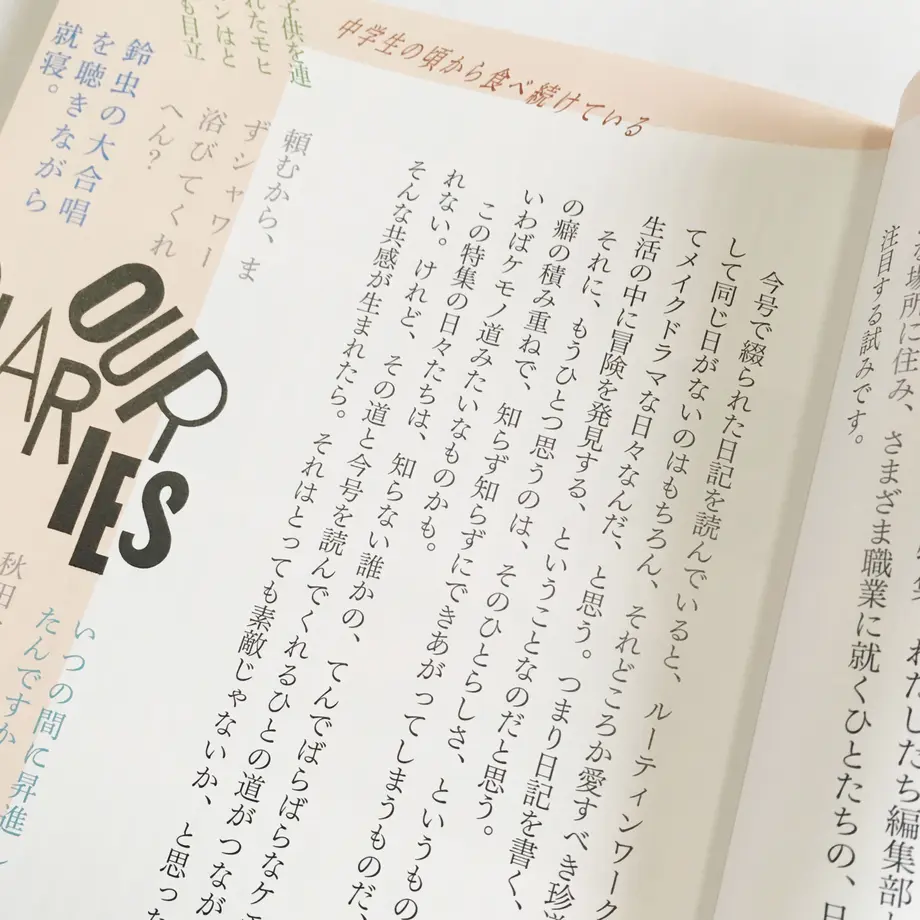 わたしたち編集部
場所に住み、さまざま職業に就くひとたちの、日
注目する試みです。
中学生の頃から食べ続けている
今号で綴られた日記を読んでいると、ルーティンワーク
して同じ日がないのはもちろん、それどころか愛すべき珍道
てメイクドラマな日々なんだ、と思う。つまり日記を書く、
生活の中に冒険を発見する、ということなのだと思う。
それに、もうひとつ思うのは、そのひとらしさ、というもの
の癖の積み重ねで、知らず知らずにできあがってしまうものだ、
いわばケモノ道みたいなものかも。
この特集の日々たちは、知らない誰かの、てんでばらばらなケモ
れない。けれど、その道と今号を読んでくれるひとの道がつなが
そんな共感が生まれたら。それはとっても素敵じゃないか、と思った
頼むから、ま
ずシャワー
浴びてくれ
へん？
子供を連
れたモヒ
ンはと
も目立
鈴虫の大合唱
を聴きながら
就寝。
OUR
DIARIES
いつの間に昇進し
たんですか
秋田